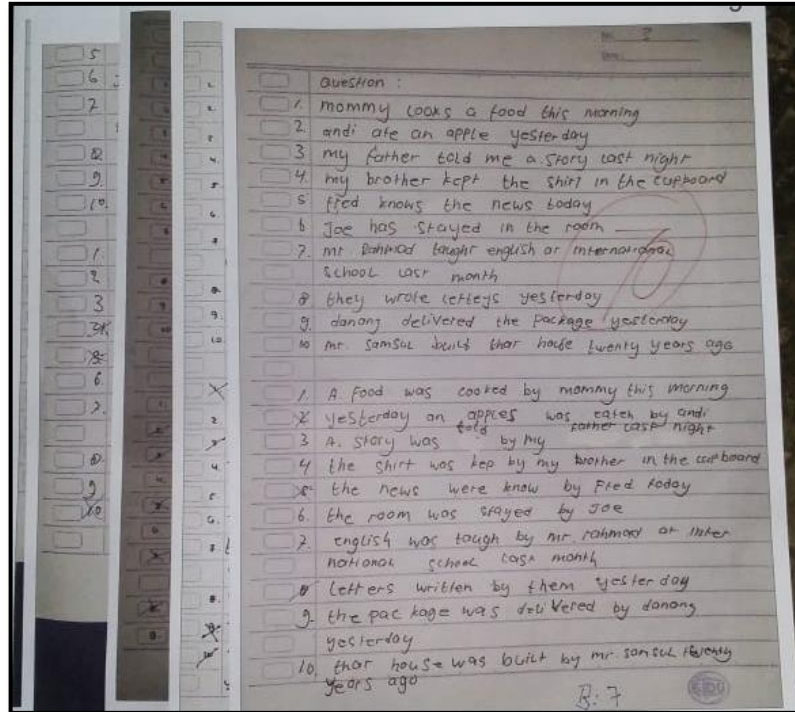 Question :
1. mommy cooks a food this morning
2. andi ate an apple yesterday
3 my father told me a story last night
4. my brother kept the shirt in the cupboard
5 fred knows the news today
6 Joe has stayed in the room
7. mr. Rahmad taught english at international
school last month
8 they wrote letteys yesterday
9. danang delivered the package yesterday
10 mr. Samsul built that house twenty years ago
1. A food was cooked by mommy this morning
2 yesterday an apples was eateh by andi
3 A. story was told by my father last night
4 the shirt was kep by my brother in the cupboard
5 the news were know by Fred today
6. the room was stayed by Joe
7. english was taugh by mr. rahmad at inter
national school last month
8 letters written by them yesterday
9. the package was delivered by danang
yesterday
10. that house was built by mr. samsul twenty
years ago
B: 7